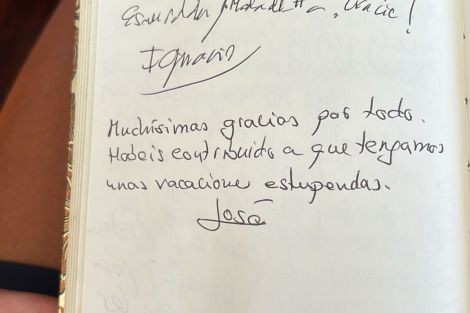 Ignacio
Muchísimas gracias por todo.
Habeis contribuido a que tengamos
unas vacacione estupendas.
José